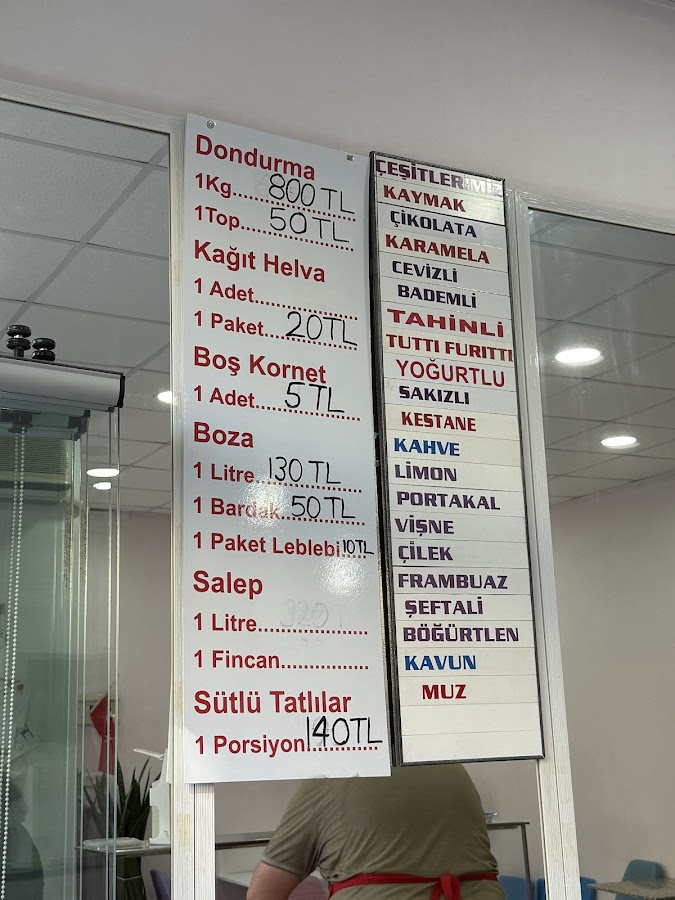 Dondurma
1Kg.................. 800 TL
1Top.................. 50 TL
Kağıt Helva
1 Adet..................
1 Paket.................. 20TL
Boş Kornet
1 Adet.................. 5TL
Boza
1 Litre.................. 130 TL
1 Bardak.................. 50TL
1 Paket Leblebi..... 10TL
Salep
1 Litre..................
1 Fincan...............
Sütlü Tatlılar
1 Porsiyon............ 140TL
ÇEŞİTLERİMİZ
KAYMAK
ÇİKOLATA
KARAMELA
CEVİZLİ
BADEMLİ
TAHİNLİ
TUTTI FURITTI
YOĞURTLU
SAKIZLI
KESTANE
KAHVE
LİMON
PORTAKAL
VİŞNE
ÇİLEK
FRAMBUAZ
ŞEFTALİ
BÖĞÜRTLEN
KAVUN
MUZ